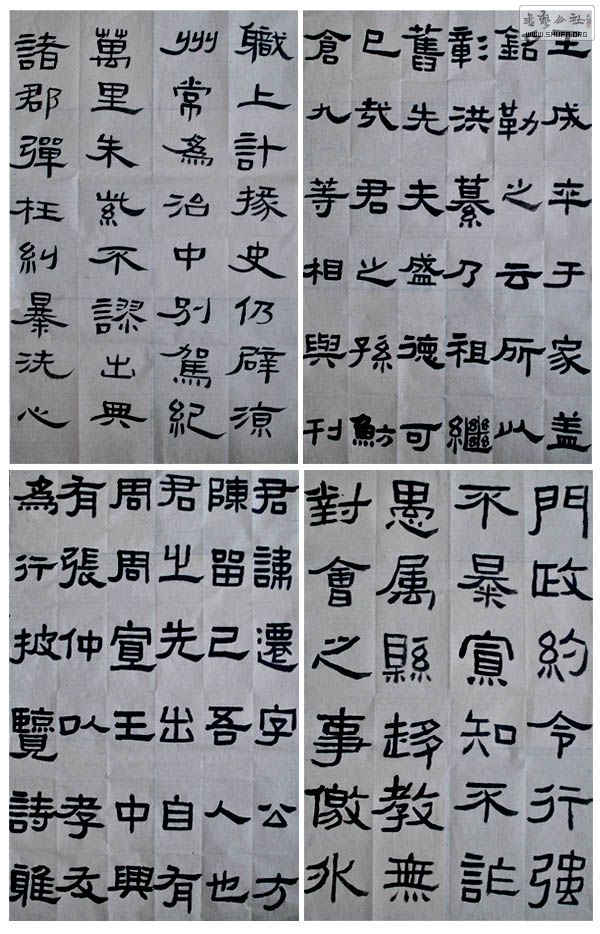 书艺公社
WWW.SHUFA.ORG
職上計掾史仍辟涼
州常為治中別駕紀
萬里朱紫不謬出典
諸郡彈枉糾暴洗心
成卒于家盖
銘勒之云所以
彰洪纂乃祖繼
舊先夫盛德可
已哉君之孫魴
倉九等相與刊
君諱遷字公方
陳留己吾人也
君之先出自有
周周宣王中興
有張仲以孝友
為行披覽詩雅
門政約令行強
不暴寡知不詐
愚属縣趍教無
對會之事儌外